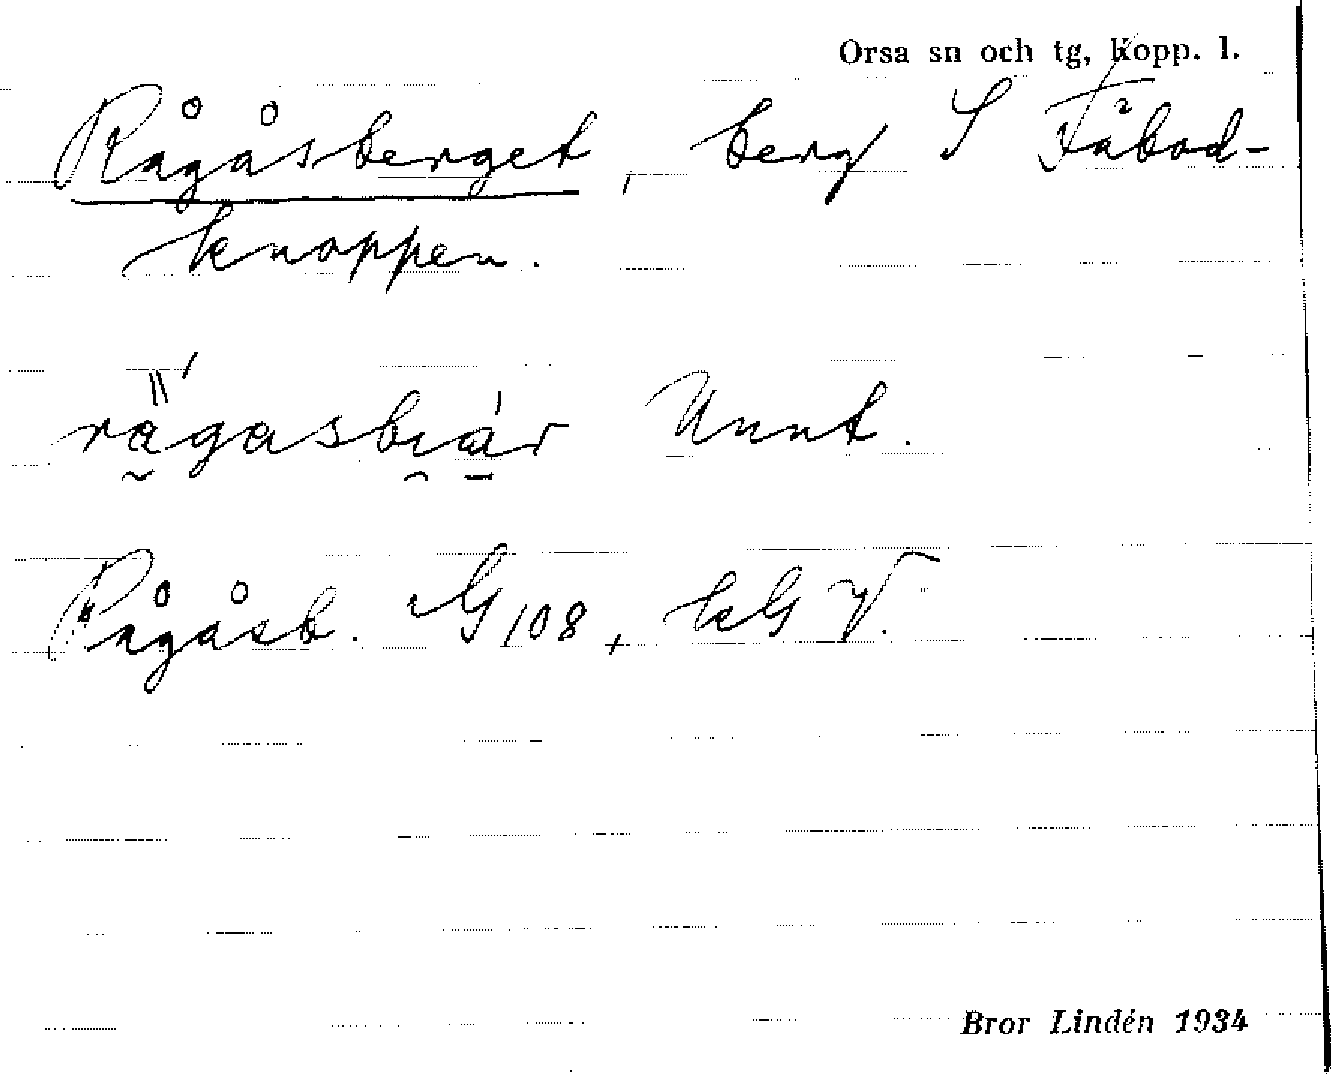 Orsa sn och tg, Kopp. l.
Rågåsberget, berg S Fäbod-
knoppen.
rägasbıàr Unnt.
Rågåsb. G 108, kG V.
Bror Lindén 1934